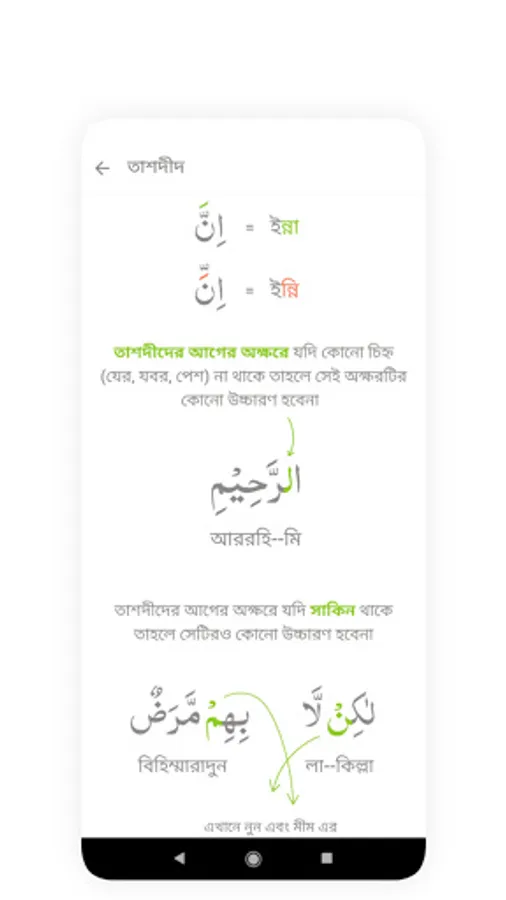 তাশদীদ
اِنَّ = ইন্না
اِنِّ = ইন্নি
তাশদীদের আগের অক্ষরে যদি কোনো চিহ্ন
(যের, যবর, পেশ) না থাকে তাহলে সেই অক্ষরটির
কোনো উচ্চারণ হবেনা
الرَّحِيْمِ
আররহি--মি
তাশদীদের আগের অক্ষরে যদি সাকিন থাকে
তাহলে সেটিরও কোনো উচ্চারণ হবেনা
بِهِمْ مَّرَضٌ لٰكِنْ لَّا
বিহিম্মারাদুন লা--কিল্লা
এখানে নুন এবং মীম এর